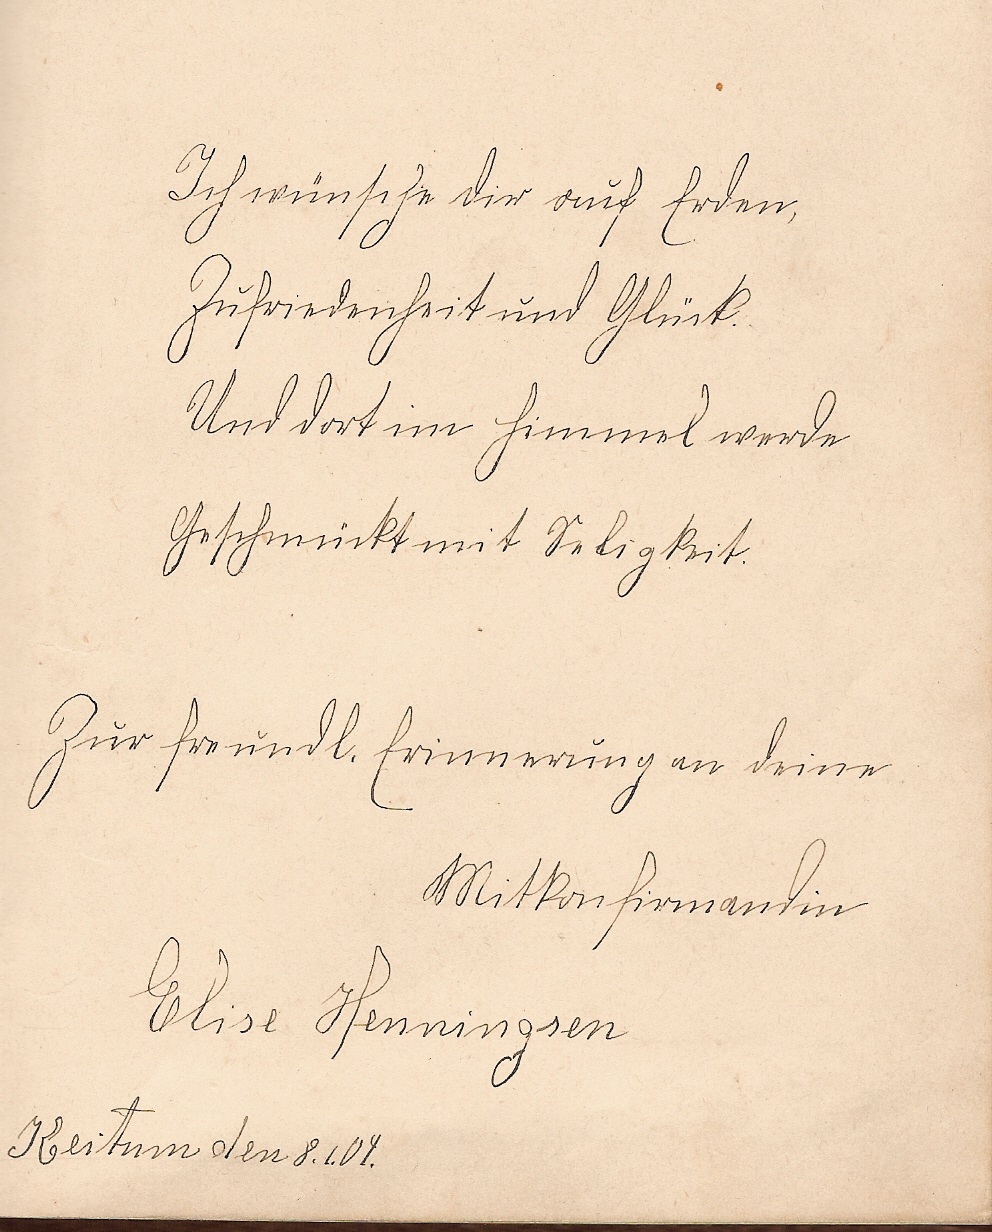 Ich wünsche dir auf Erden,
Zufriedenheit und Glück.
Und dort im Himmel werde
Geschmückt mit Seligkeit.
Zur freundl. Erinnerung an deine
Mitkonfirmandin
Elise Henningsen
Keitum den 8.1.04.